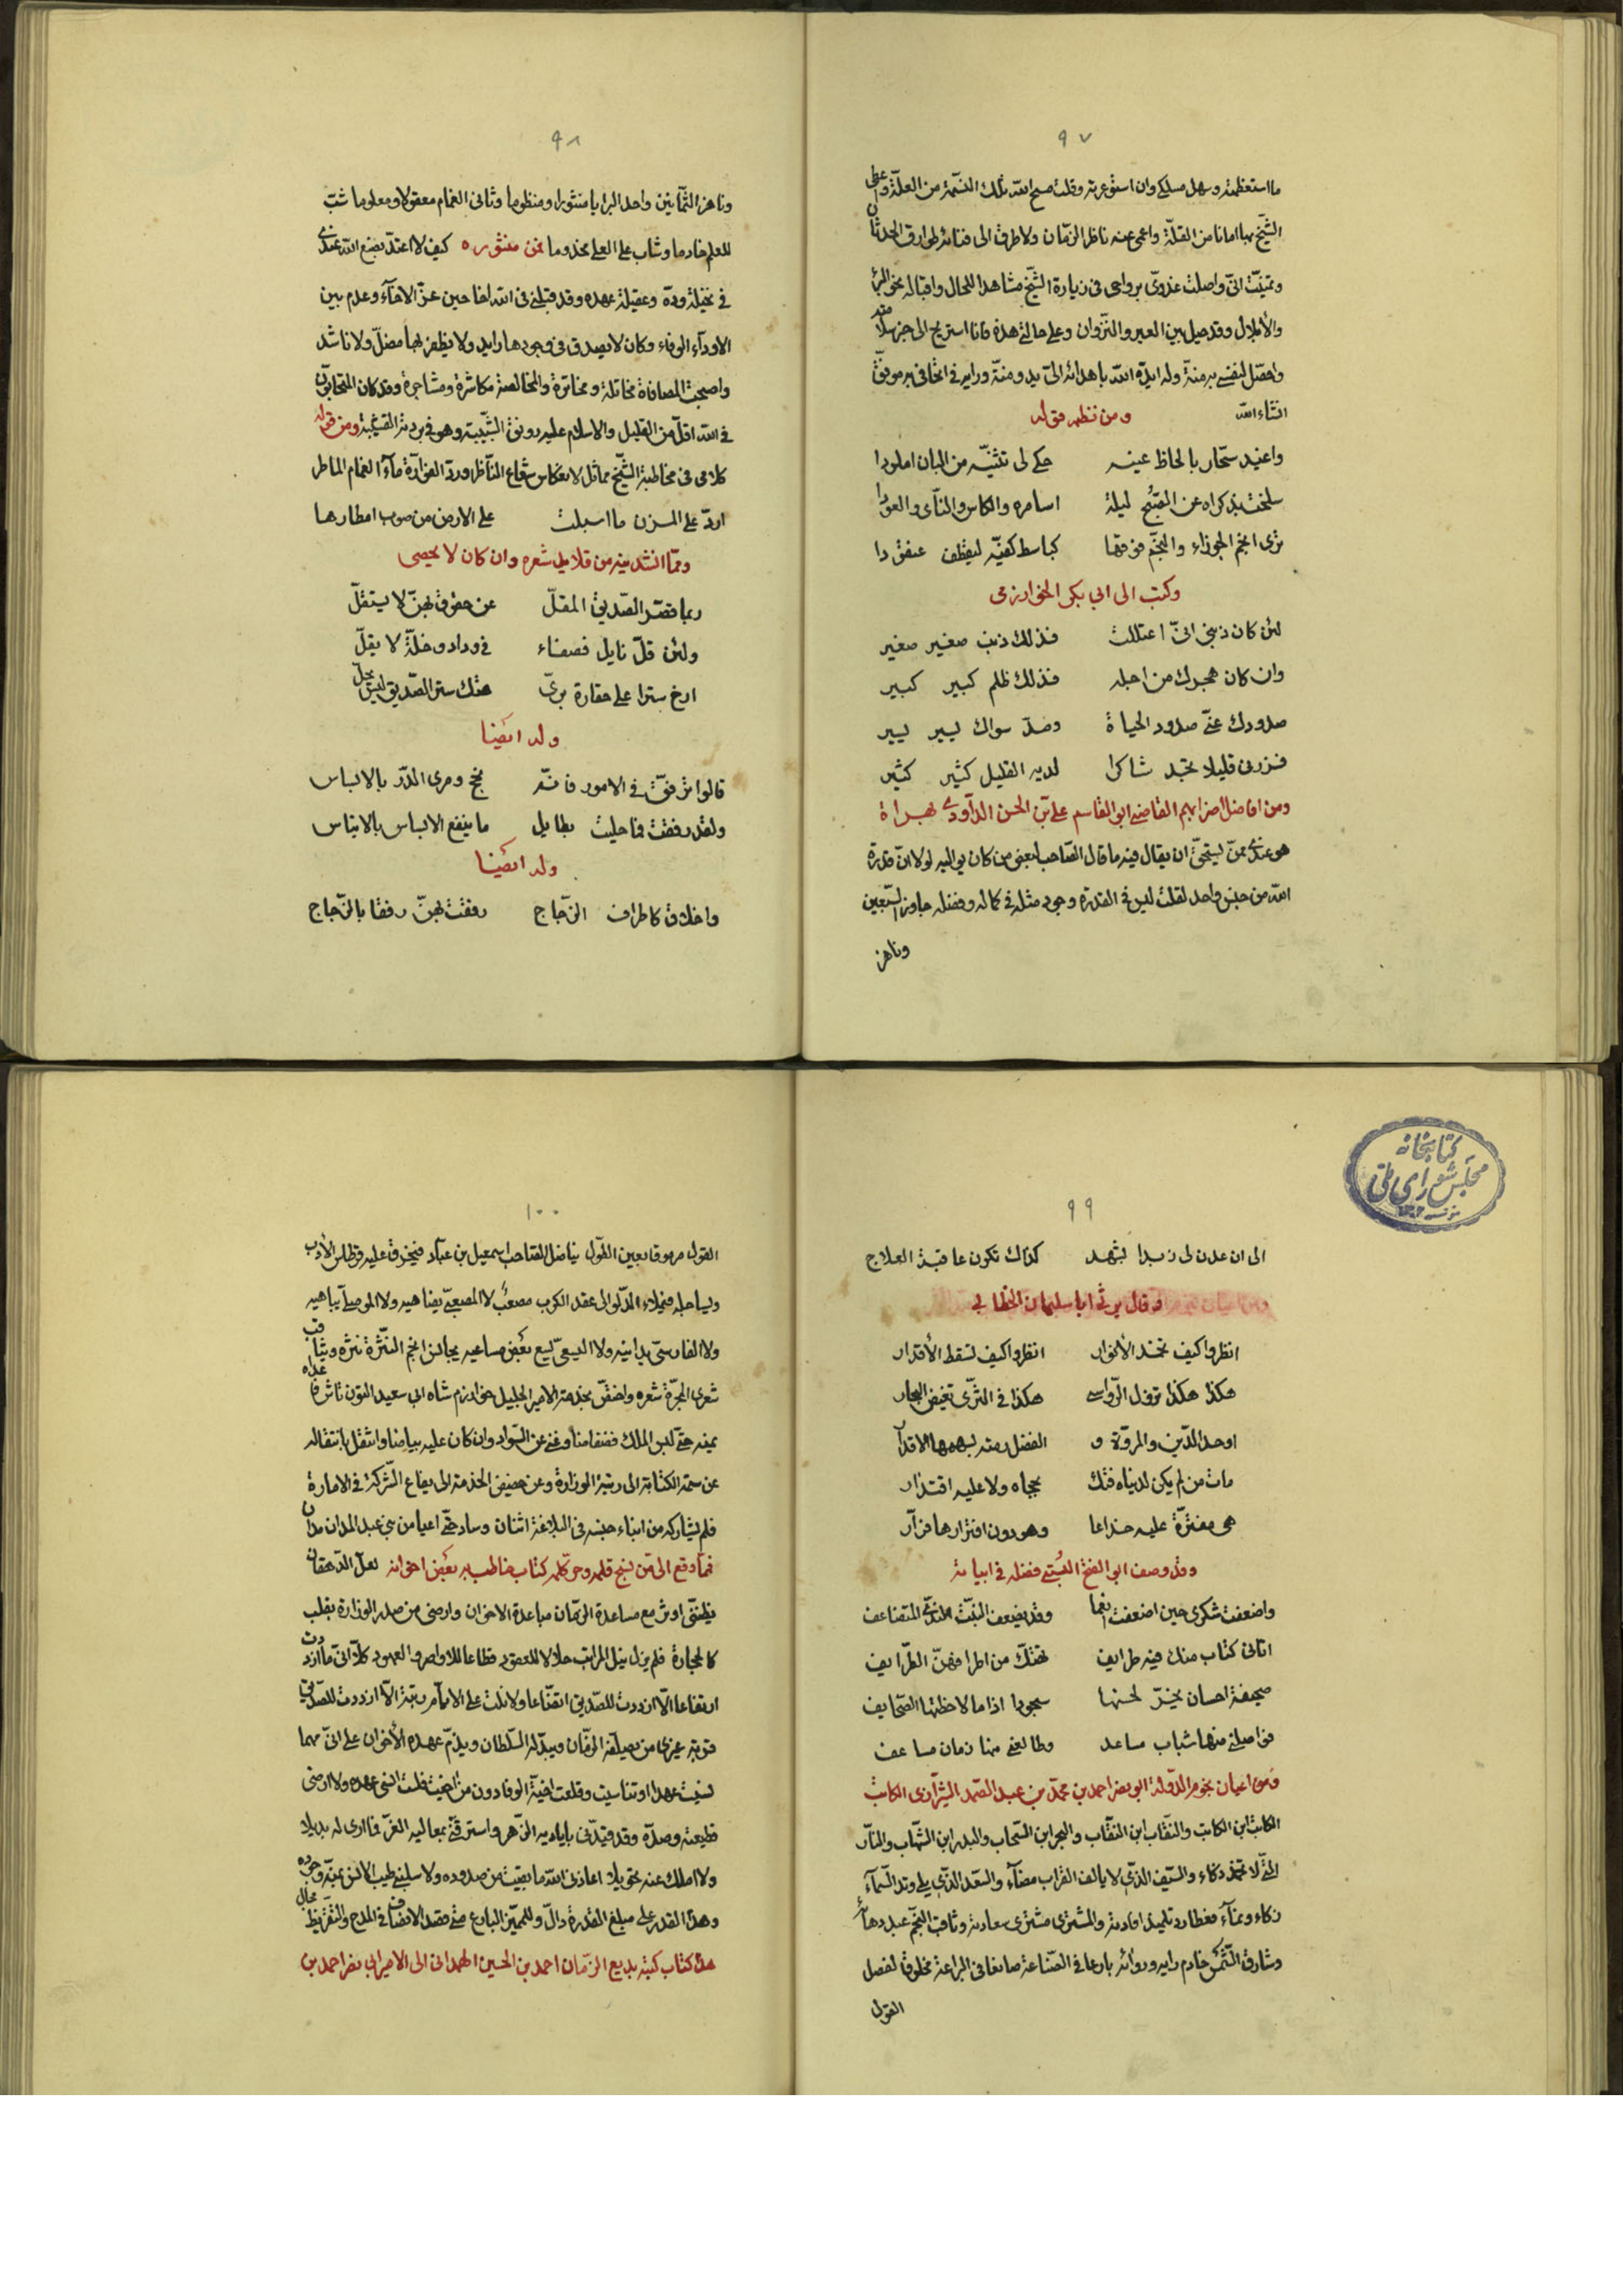 ٩٧
ما استعظمته وسهل مسلكي وان استوعرته وقلت مسح الله تلك النسمة من العلة واعطى
الشيخ بها امانا من القلة واعمى عنه ناظر الزمان ولا طرق الى فنائه طوارق الحدثان
وتمنيت انى واصلت غدوى برواحى فى زيارة الشيخ مشاهدا للحال واقباله نحو البرء
والابلال وقد حيل بين العير والنزوان وعلى حالتى هذه فانا استريح الى خبر سلامته
واحصل لنفسى به منة وله ايده الله باهدائه الى يد ومنة ورايه فى اتحافى به موفق
انشاء الله ومن نظمه قوله
واغيد سحار بالحاظ عينه حكى لى تثنيه من البان املودا
سلخت بذكراه عن الصبح ليلة اسامره والكاس والناى والعودا
ترى انجم الجوزاء والنجم فوقها كباسط كفيه ليقطف عنقودا
وكتب الى ابى بكر الخوارزمى
لئن كان ذنبى انى اعتللت فذلك ذنب صغير صغير
وان كان هجرك من اجله فذلك ظلم كبير كبير
صدودك عنى صدود الحياة وصد سواك يسير يسير
فزرنى قليلا تجد شاكرا لديه القليل كثير كثير
ومن افاضل اضرابهم القاضى ابو القاسم على بن الحسن الداودى بهراة
هو عندى ممن يستحق ان يقال فيه ما قال الصاحب لبعض من كان يواليه لولا ان قدرة
الله من جنس واحد لقلت ليس فى القدرة وجود مثله فى كماله وفضله جاوز السبعين
وناهز
٩٨
وناهز الثمانين واحد البرايا منثورا ومنظوما وثانى الغمام معقولا ومعلوما شب
للعلم خادما وشاب على العلى مخدوما فمن منثوره كيف لا اعتد بصنع الله عندى
فى نخيلة وده وعقيلة عهده وقد قبلنى فى الله لفاحين عز الاخاء وعدم بين
الاوداء الوفاء وكان لا يصدق فى وجودها رايد ولا يظفر بها مضل ولا ناشد
واصبحت المصافاة مخاتلة ومخاترة والمخالصة مكاشرة ومشاجرة وقد كان المتحابون
فى الله اقل من القليل والاسلام عليه رونق الشبيبة وهو فى بردته القشيبة ومن قوله
كلامى فى مخاطبة الشيخ مماثل لانعكاس شعاع الناظر ورد القرارة ماء الغمام الماطر
ارد على المزن ما اسبلت على الارض من صوب امطارها
ومما انشدنيه من قلايل شعره وان كان لا يحصى
ربما قصر الصديق المقل عن حقوق بهن لا يستقل
ولئن قل نايل فصفاء فى وداد وخلة لا يقل
ارخ سترا على حقارة برى هتك ستر الصديق ليس يحل
وله ايضا
قالوا ترفق فى الامور فانه نجح ومرى الدر بالابساس
ولقد رفقت فما حليت بطايل ما ينفع الابساس بالاتياس
وله ايضا
واخلاق كاطراف الزجاج رفقت بهن رفقا بالزجاج
كتابخانه
مجلس شوراى ملى
٩٩
الى ان عدن لى زبدا بشهد كذاك تكون عاقبة العلاج
وقال يرثى ابا سليمان الخطابى
انظروا كيف تخمد الأنوار انظروا كيف تسقط الأقدار
هكذا هكذا تزول الرواسى هكذا فى الثرى تغيض البحار
اوحد الدين والمروة و الفضل رمته بسهمها الاقدار
مات من لم يكن لدنياه فتك بحجاه ولا عليه اقتدار
هى مغترة عليه خداعا وهو دون اغترارها فرار
وقد وصف ابو الفتح البستى فضله فى ابياته
واضعفت شكرى حين اضعفت انعما وقد يضعف النبت الندى المتضاعف
اتانى كتاب منك فيه طرايف تهتك من اطرافهن الطرايف
صحيفة احسان يخر لحسنها سجودا اذا ما لاحظتها الصحايف
فواصلنى منها شباب مساعد وطالعنى منها زمان مساعف
ومن اعيان نجوم الدولة ابو نصر احمد بن محمد بن عبد الصمد الشيرازى الكاتب
الكاتب ابن الكاتب والنقاب ابن النقاب والبحر ابن السحاب والبدر ابن الشهاب والنار
التى لا تخمد ذكاء والسيف الذى لا يالف القراب مضاء والسعد الذى يلى وتد السماء
زكاء ونماء فعطارد تلميذ افادته والمشترى مشترى سعادته وثاقب النجم عبد دهائه
وشارق الشمس خادم رايه وروائه بارعا فى الصناعة صائغا فى البراعة مخلوقا لفصل
القول
١٠٠
القول مرموقا بعين القبول يناضل الصاحب اسمعيل بن عباد فيخرق عليه قرطاس الأدب
ويساجله فيملاء الدلو الى عقد الكرب مصعب لا المصعبى يضاهيه ولا الموصلى يباهيه
ولا الفارسى يدانيه ولا السبعى يسع بعض مساعيه يجالس انجم النثرة نثره ويثاقب
شعرى المجرة شعره واختص بخدمة الامير الجليل خوارزم شاه ابى سعيد التونتاش
يمينه حتى لبس الملك فضفاضا وغنى عن السواد وان كان عليه بياضا وانتقل بانتقاله
عن سمة الكتابة الى رتبة الوزارة وعن حضيض الخدمة الى يفاع الشركة فى الامارة
فلم يشاركه من ابناء جنسه فى البلاغة اثنان وساد حتى اعيا من بنى عبد المدان مدان
فما وقع الى من نسج قلمه وحوك كلمه كتاب خاطب به بعض اخوانه لعل الدهقان
يظننى اوثر مع مساعدة الزمان مباعدة الاخوان وارضى من صدر الوزارة بقلب
كالحجارة فلم يزل نيل المراتب حلالا للعقود قطاعا للاواصر والعهود كلا انى ما ازددت
ارتفاعا الا ازددت للصديق اتضاعا ولا نلت على الايام رتبة الا ازددت للصديق
قربة غيرى من يصلفه الزمان ويبدله السلطان ويذم عهده الأخوان على انى مهما
نسيت عهدا او تناسيت وقلعت اخية الوفا دون من اخيت فلست انسى عهده ولا ارضى
قطيعته وصده وقد قيدنى باياديه الزهر واسترقنى بمعاليه الغر فما ارى له بديلا
ولا املك عنه تحويلا اعاذنى الله ما بقيت من صدوده ولا سلبنى طيب الانس بمودته وجوده
وهذا القدر على مبلغ القدرة دال وللمميز البارع متى قصد الانصاف فى المدح والتقريظ مجال
هذا كتاب كتبه بديع الزمان احمد بن الحسين الهمدانى الى الامير ابى نصر احمد بن